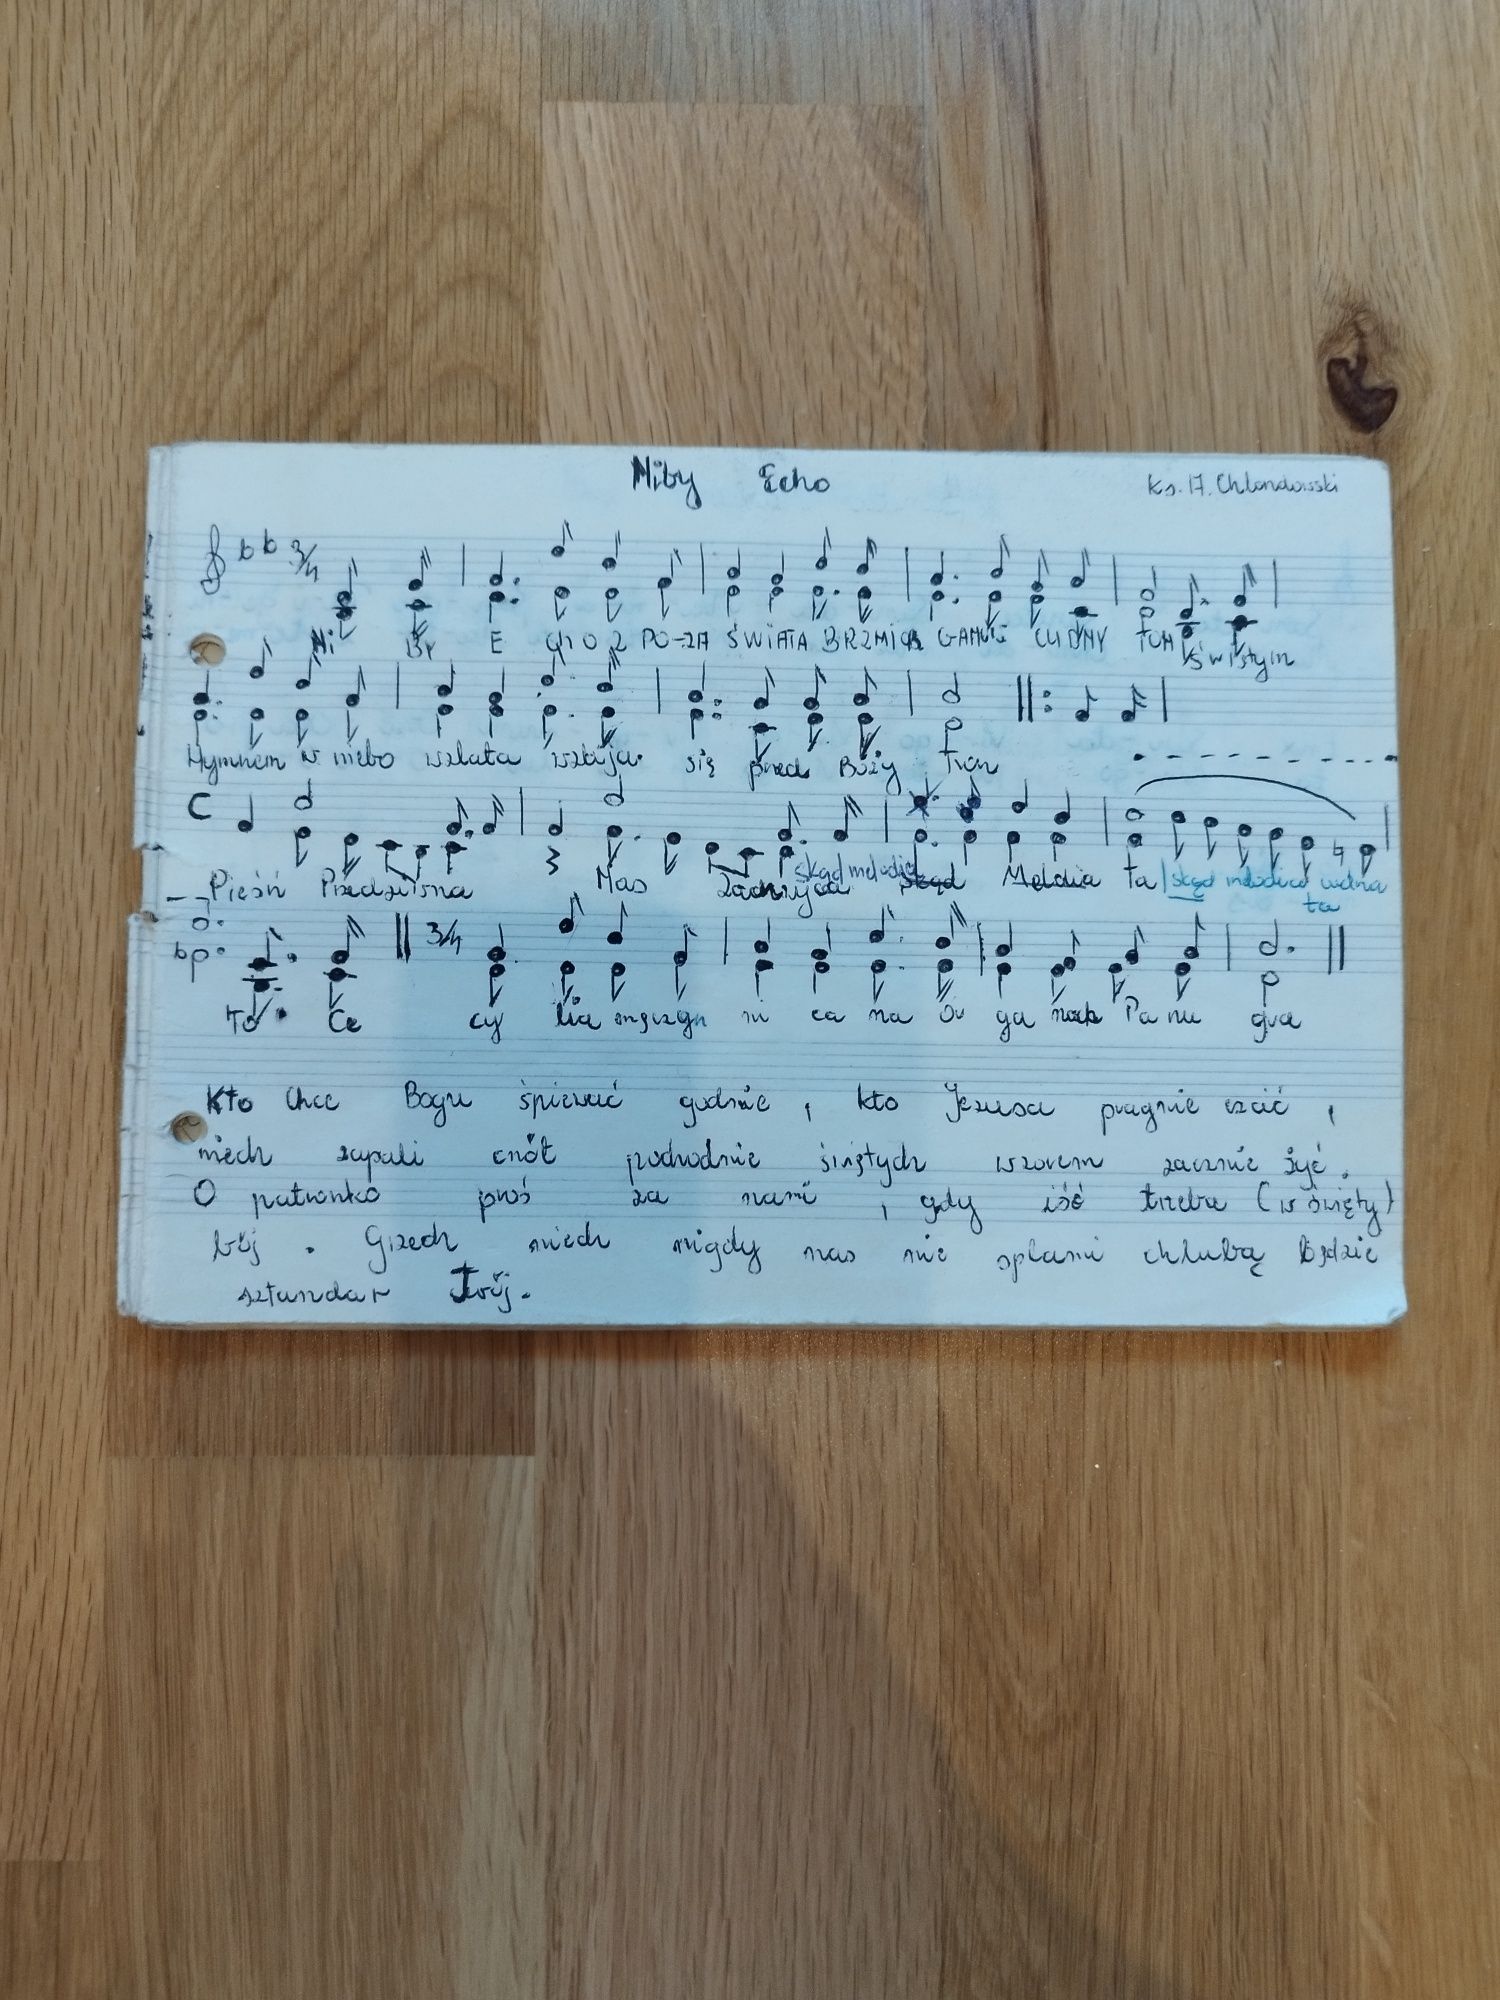 Niby Echo
Ks. A. Chlondowski
3/4
Ni BY E CHO Z PO-ZA ŚWIATA BRZMI CUDNY TON Świętym
Hymnem w niebo wzlata wzbija się przed Boży tron
C
skąd melodia
Pieśń Przedziwna Nas Zachwyca skąd Melodia ta skąd melodia
ta
3/4
To Ce cy lia męczen ni ca na Or ga nach Pa nu gra
Kto Chce Bogu śpiewać godnie, kto Jezusa pragnie czcić,
niech zapali cnót pochodnie świętych wzorem zacznie żyć.
O patronko proś za nami, gdy iść trzeba (w święty)
bój. Grzech niech nigdy nas nie splami chlubą będzie
sztandar Twój.